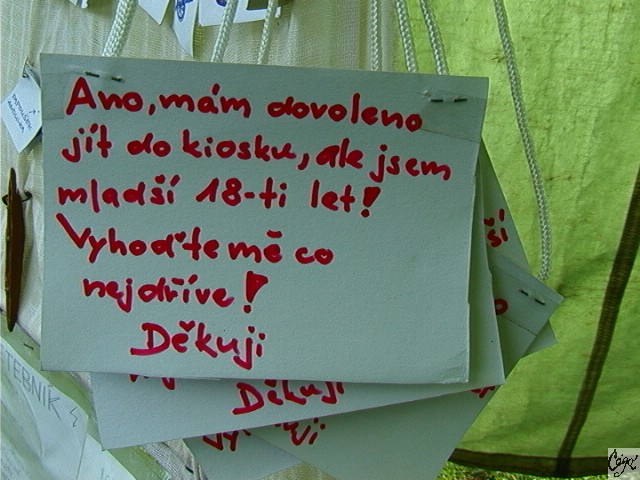 Ano, mám dovoleno
jít do kiosku, ale jsem
mladší 18-ti let!
Vyhoďte mě co
nejdříve!
Děkuji
ší
Děkuji
TEBNÍK